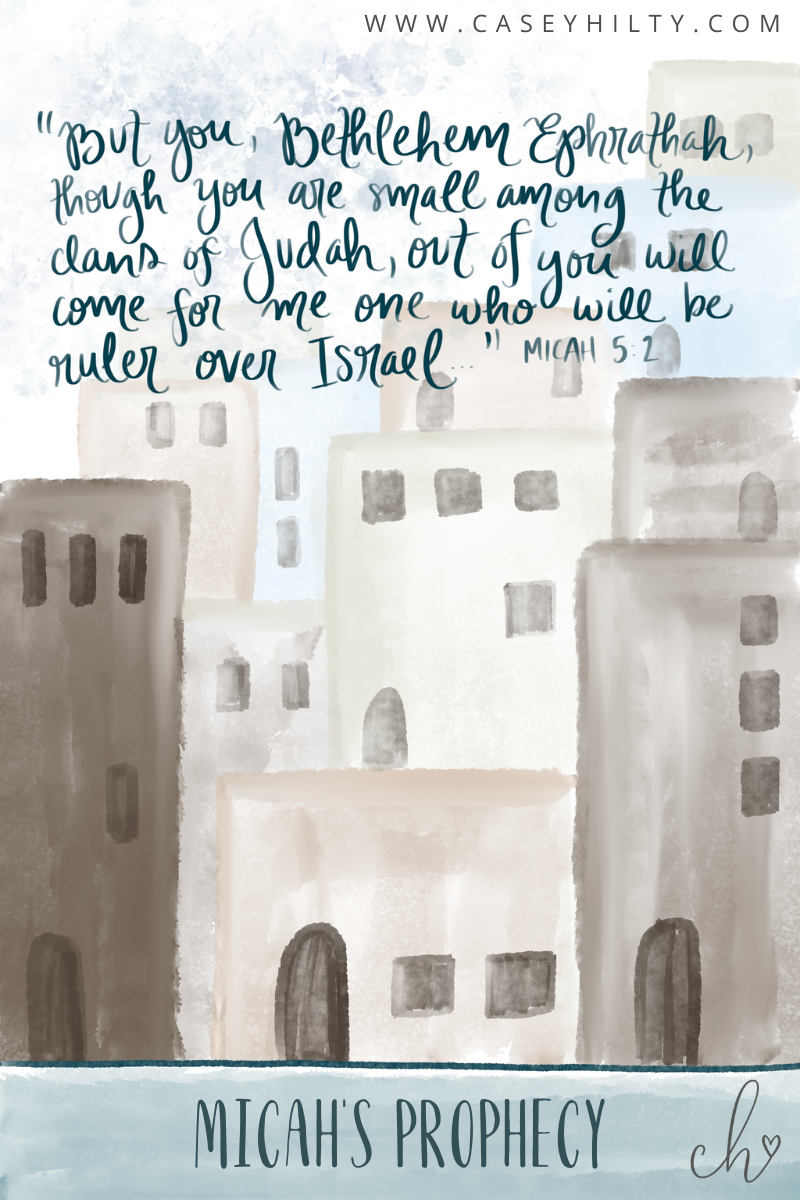 WWW.CASEYHILTY.COM
"But you, Bethlehem Ephrathah,
though you are small among the
clans of Judah, out of you will
come for me one who will be
ruler over Israel..." MICAH 5:2
MICAH'S PROPHECY
ch